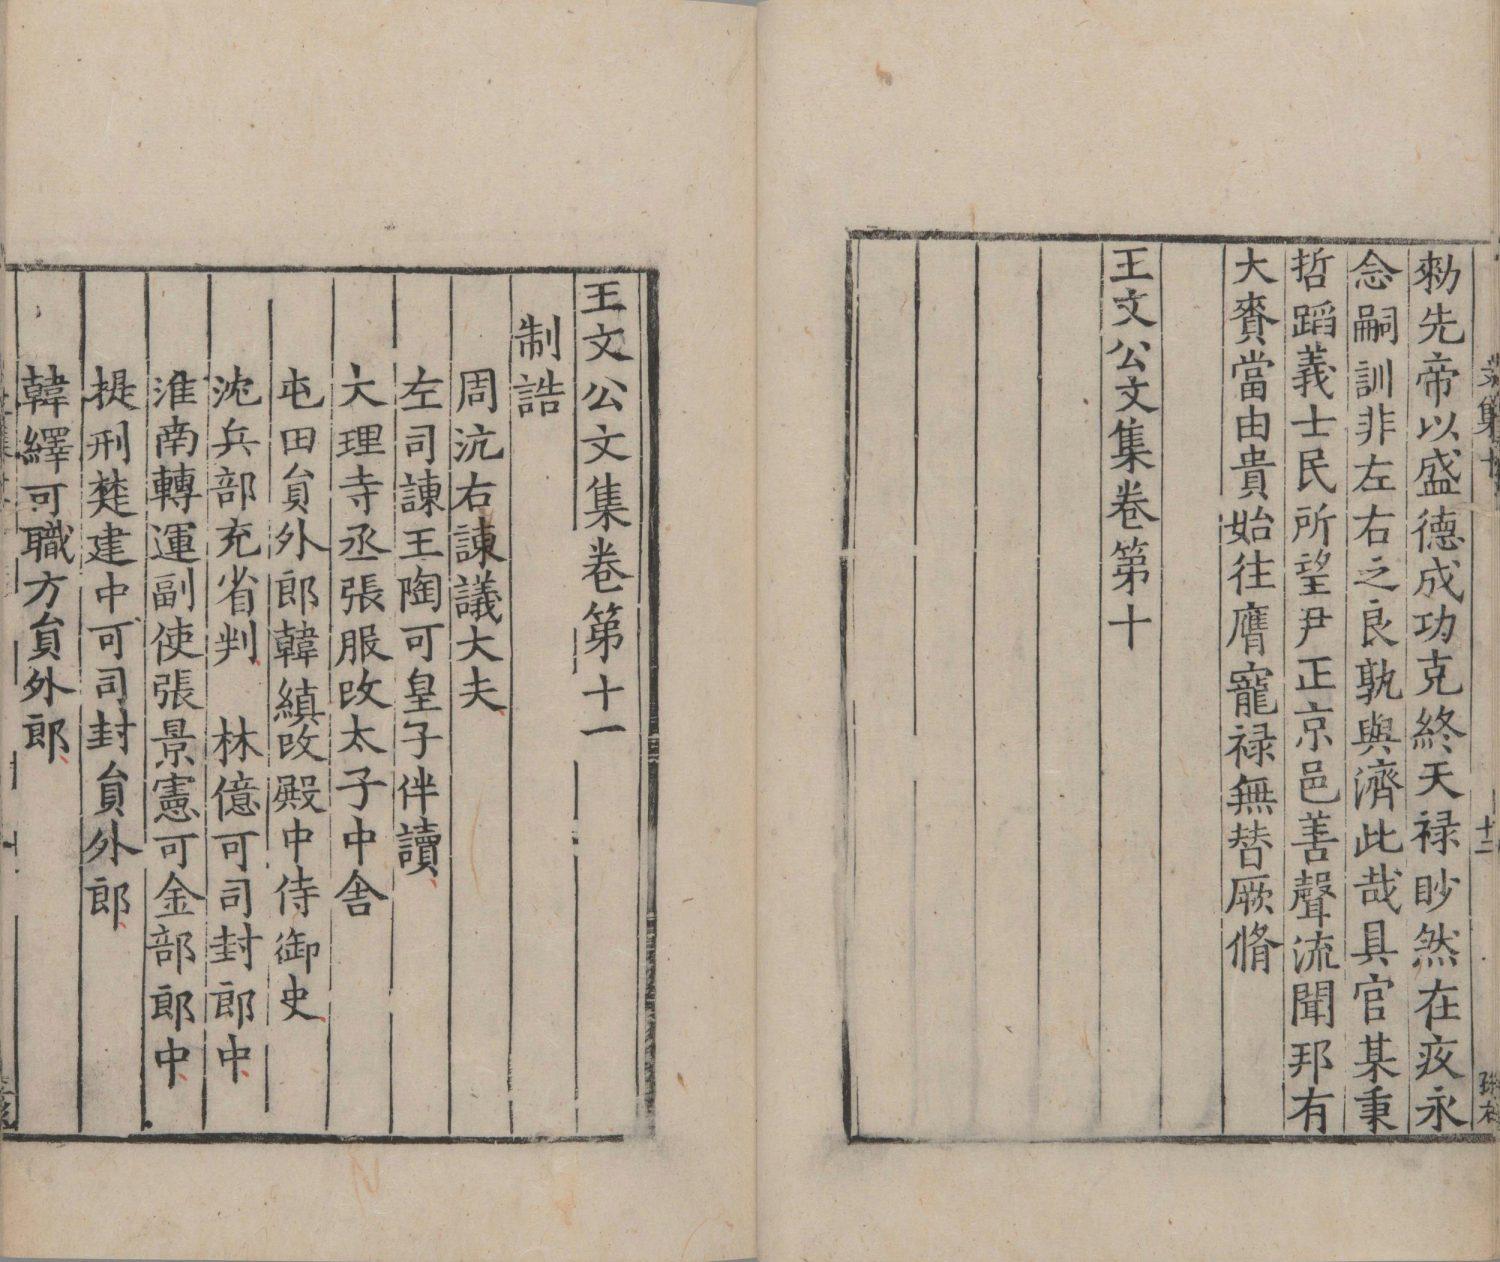 勑先帝以盛德成功克終天禄眇然在疚永
念嗣訓非左右之良孰與濟此哉具官某秉
哲蹈義士民所望尹正京邑善聲流聞邦有
大賚當由貴始往膺寵禄無替厥脩
王文公文集卷第十
王文公文集卷第十一
制誥
周沆右諫議大夫
左司諫王陶可皇子伴讀
大理寺丞張服改太子中舍
屯田貟外郎韓縝改殿中侍御史
沈兵部充省判 林億可司封郎中
淮南轉運副使張景憲可金部郎中
提刑楚建中可司封貟外郎
韓繹可職方貟外郎